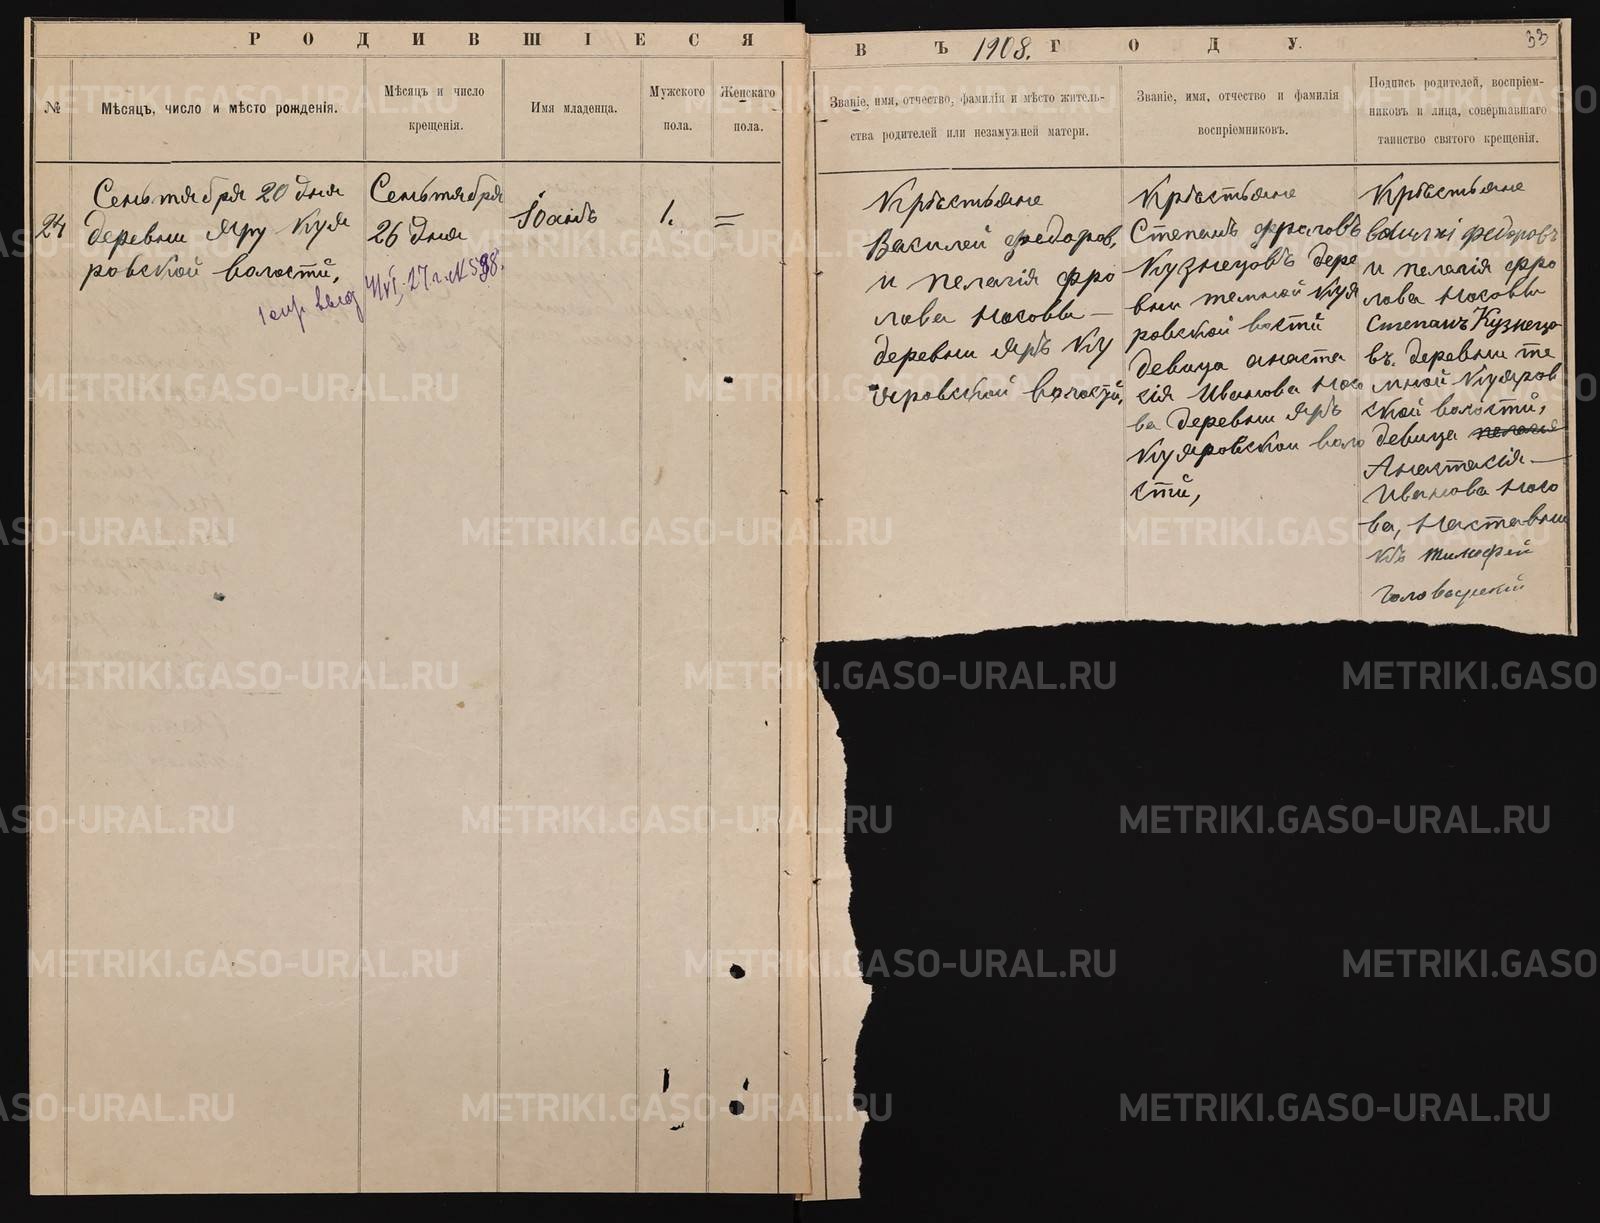 РОДИВШІЕСЯ
ВЪ 1908. ГОДУ.
33
№
Мѣсяцъ, число и мѣсто рожденія.
Мѣсяцъ и число
крещенія.
Имя младенца.
Мужского
пола.
Женскаго
пола.
Званіе, имя, отчество, фамилія и мѣсто житель-
ства родителей или незамужней матери.
Званіе, имя, отчество и фамилія
воспріемниковъ.
Подпись родителей, воспріем-
никовъ и лица, совершавшаго
таинство святого крещенія.
24
Сеньтября 20 дня
деревни Яру Куя
ровской волости,
Сеньтября
26 дня
1 спр. выд 4/VI-27 г. № 598.
Іоанъ
1.
=
Крѣстьяне
Василей федоров,
и пелагія фро
лова Носовы —
деревни Яръ Ку
яровской волости,
Крѣстьяне
Степанъ фроловъ
Кузнецовъ дере
вни темной Куя
ровской востй
девица анаста
сія Иванова Носо
ва деревни Яръ
Куяровской воло
стй,
Крѣстьяне
василні федоровъ
и пелагія фро
лова Носовы
Степанъ Кузнецо
въ деревни те
мной Куяров
ской волости,
девица пелагія
Анастасія —
Иванова Носо
ва, Наставни
къ тимофей
METRIKI.GASO-URAL.RU